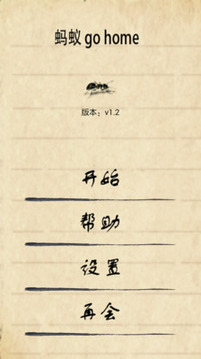 蚂蚁 go home
版本：v1.2
开始
帮助
设置
再会